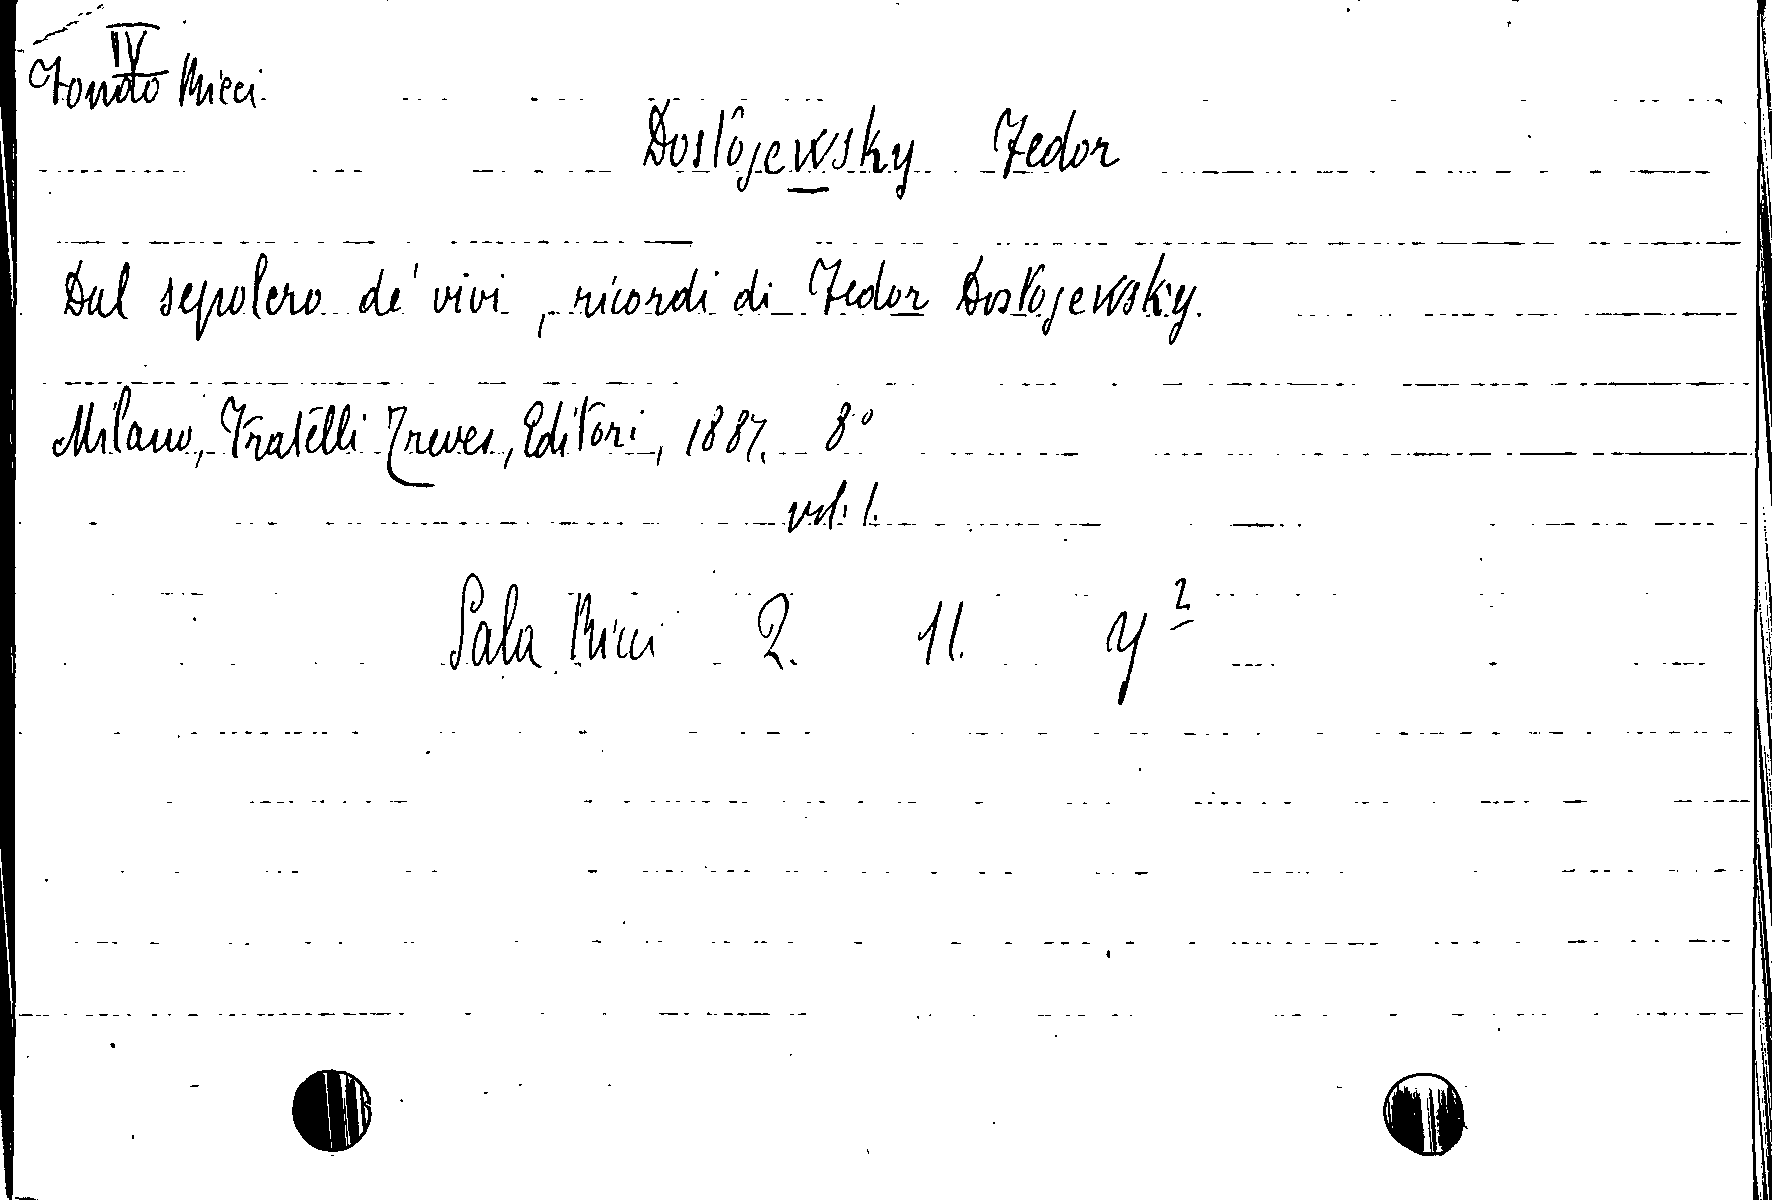 IV
Fondo Ricci
Dostojewsky Fedor
Dal sepolcro de' vivi, ricordi di Fedor Dostojewsky.
Milano, Fratelli Treves, Editori, 1887. 8º
vol. 1.
Sala Ricci 2. 11. y²